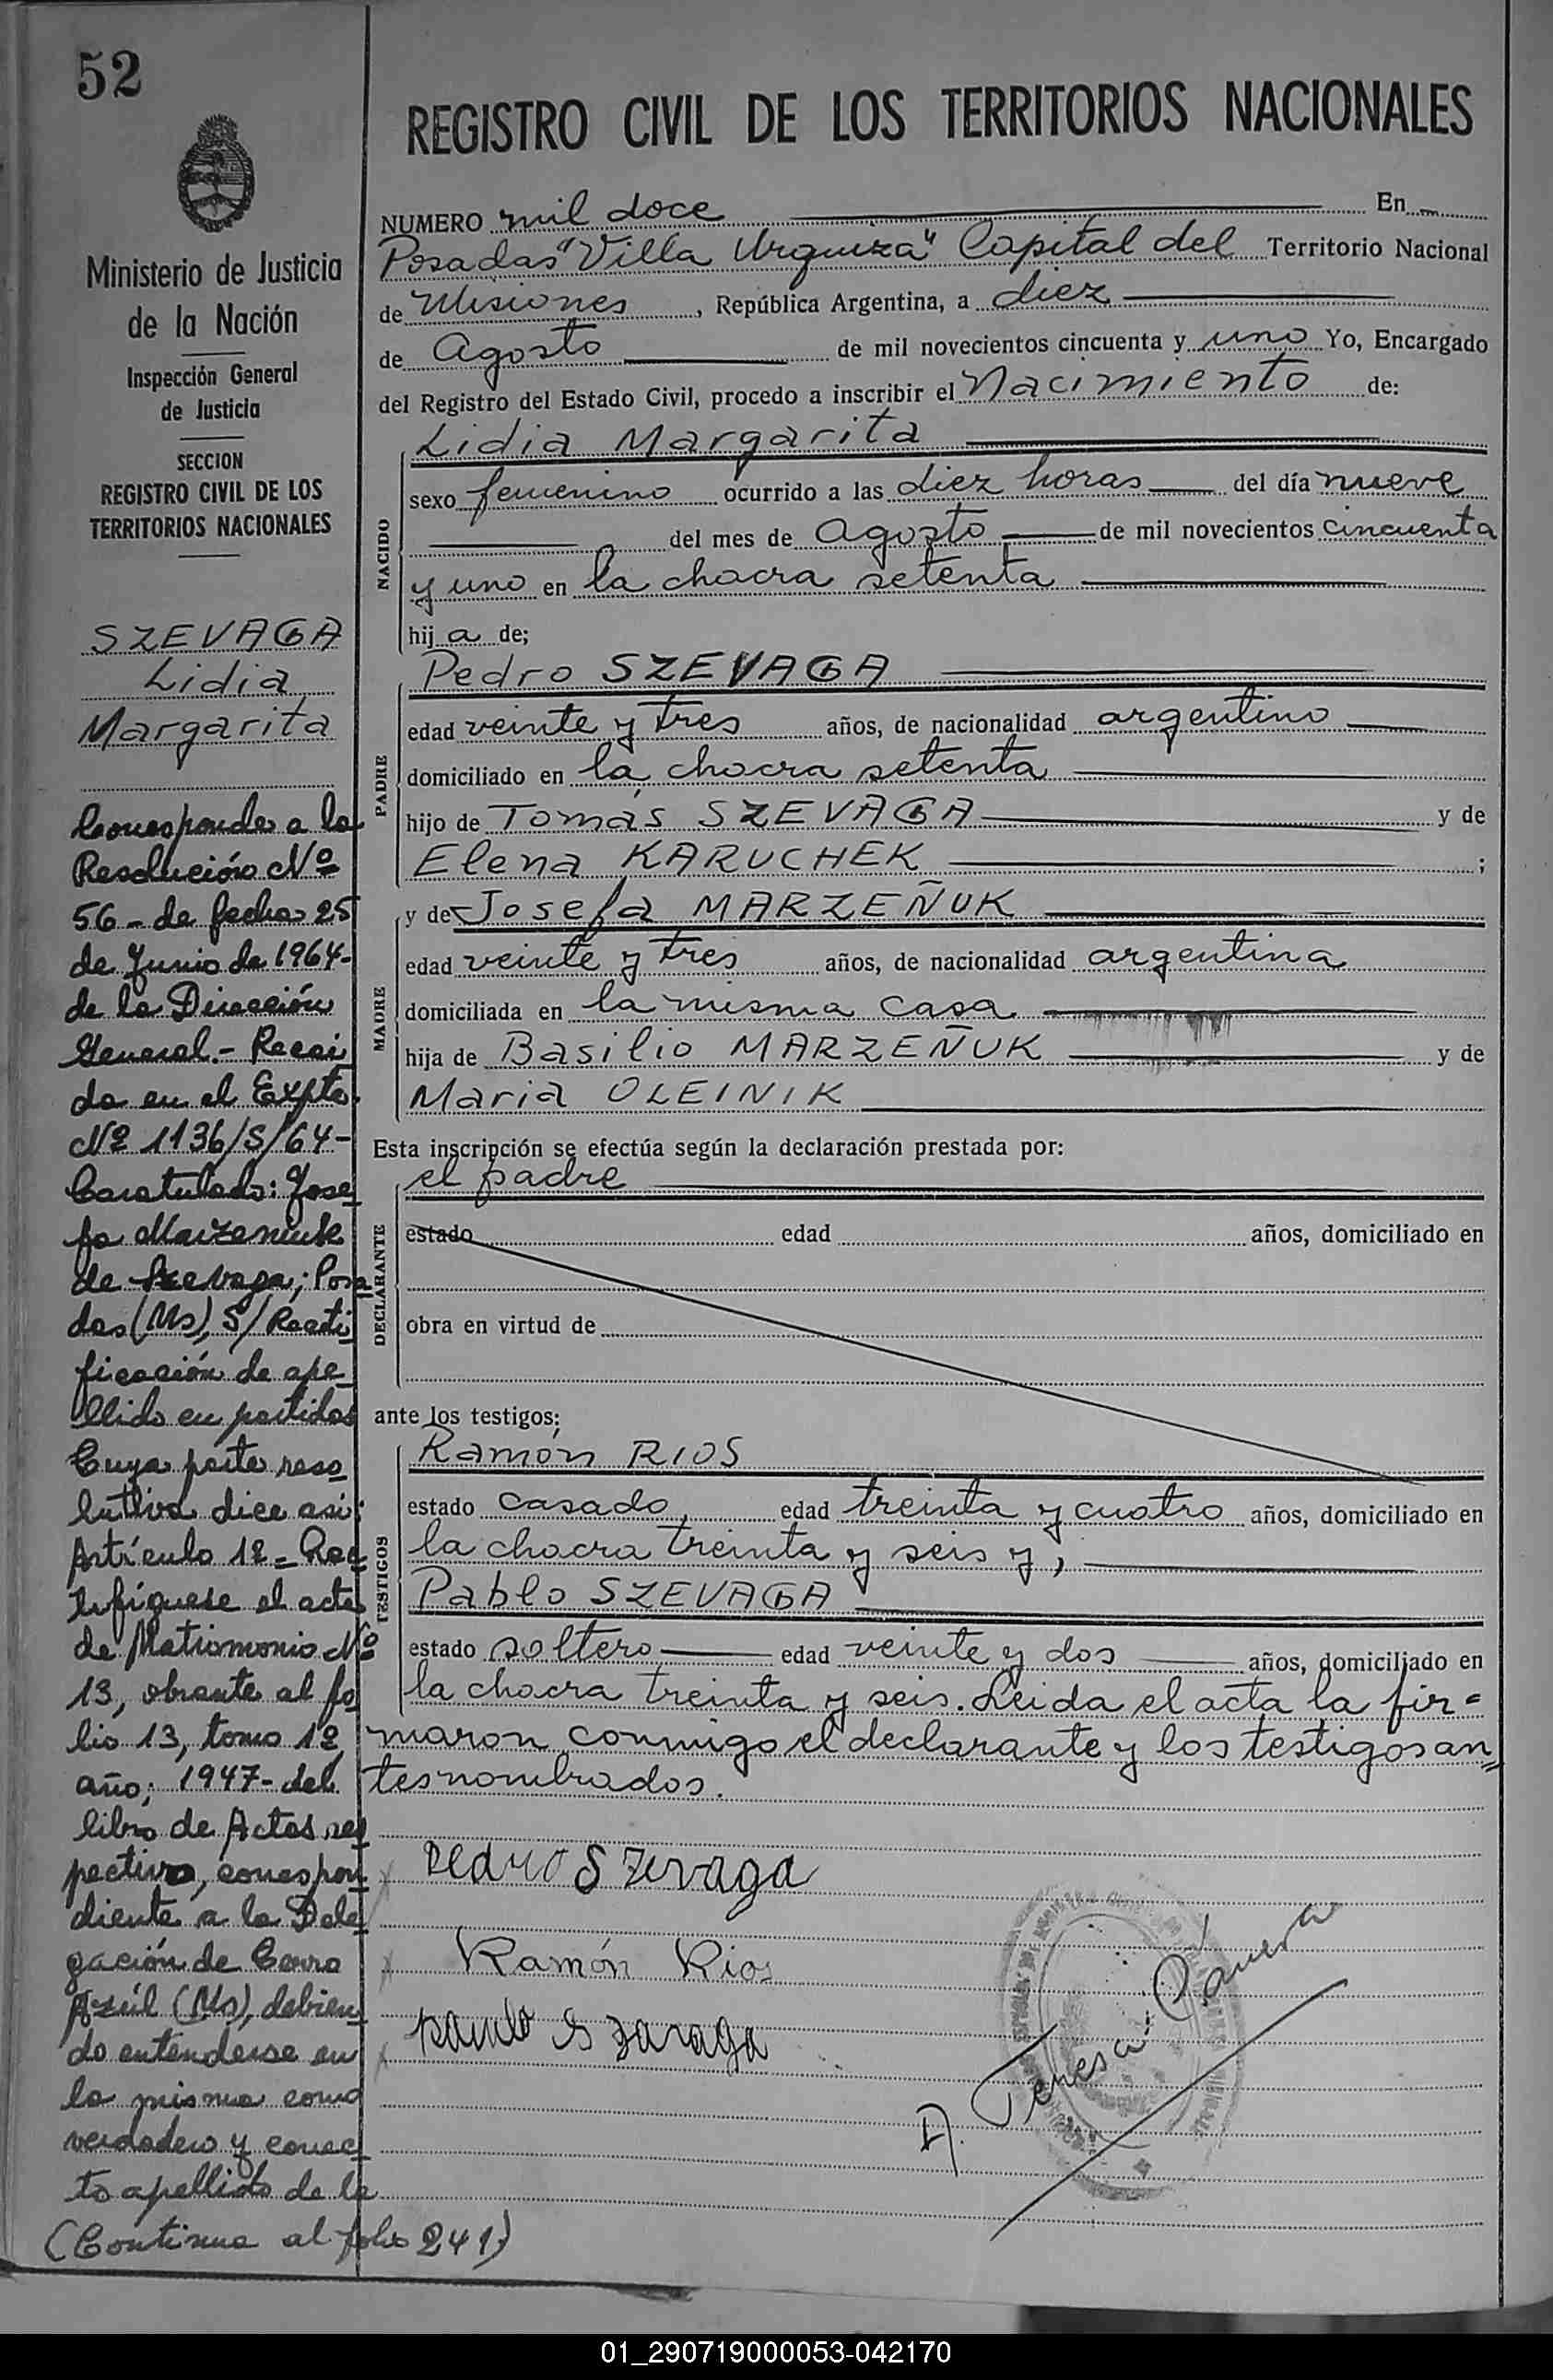 52
Ministerio de Justicia
de la Nación
Inspección General
de Justicia
SECCION
REGISTRO CIVIL DE LOS
TERRITORIOS NACIONALES
SZEVAGA
Lidia
Margarita
Corresponde a la
Resolución Nº
56 - de fecha 25
de Junio de 1964-
de la Dirección
General.- Recai
da en el Expte.
Nº 1136/S/64-
Caratulado: Jose
fa Marzeniuk
de Szevaga; Posa
das (Ms), S/Recti
ficación de ape
llido en partidas
Cuya parte reso
lutiva dice así:
Artículo 1º - Rec
tifíquese el acta
de Matrimonio Nº
13, obrante al fo
lio 13, tomo 1º,
año; 1947- del
libro de Actas res
pectivo, correspon
diente a la Dele
gación de Cerro
Azúl (Ms), debien
do entenderse en
la misma como
verdadero y correc
to apellido de la
(Continua al folio 241)
REGISTRO CIVIL DE LOS TERRITORIOS NACIONALES
NUMERO mil doce En
Posadas "Villa Urquiza" Capital del Territorio Nacional
de Misiones, República Argentina, a diez
de Agosto de mil novecientos cincuenta y uno Yo, Encargado
del Registro del Estado Civil, procedo a inscribir el Nacimiento de:
NACIDO
Lidia Margarita
sexo femenino ocurrido a las diez horas del día nueve
del mes de Agosto de mil novecientos cincuenta
y uno en la chacra setenta
hij a de;
PADRE
Pedro SZEVAGA
edad veinte y tres años, de nacionalidad argentino
domiciliado en la chacra setenta
hijo de Tomás SZEVAGA y de
Elena KARUCHEK ;
MADRE
y de Josefa MARZEÑUK
edad veinte y tres años, de nacionalidad argentina
domiciliada en la misma casa
hija de Basilio MARZEÑUK y de
Maria OLEINIK
Esta inscripción se efectúa según la declaración prestada por:
DECLARANTE
el padre
estado edad años, domiciliado en
obra en virtud de
ante los testigos;
TESTIGOS
Ramón RIOS
estado casado, edad treinta y cuatro años, domiciliado en
la chacra treinta y seis y,
Pablo SZEVAGA
estado soltero edad veinte y dos años, domiciliado en
la chacra treinta y seis. Leida el acta la fir=
maron conmigo el declarante y los testigos an=
tesnombrados.
Pedro Szevaga
Ramón Rios
01_290719000053-042170